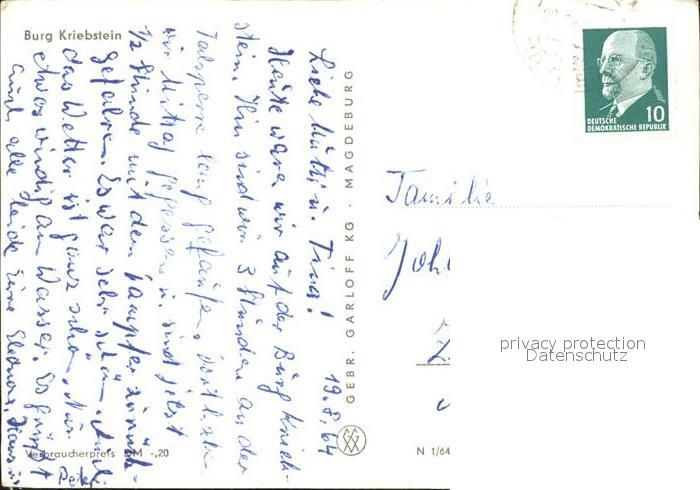 Burg Kriebstein
19.8.64
Liebe Mutti u. Tina!
Heute waren wir auf der Burg Krieb-
stein. Hin sind wir 3 Stunden an der
Talsperre lang gelaufen, dort
wir Mittag gegessen u. sind jetzt
1/2 Stunde mit dem Dampfer zurück-
gefahren. Es war sehr schön. Auch
das Wetter ist ganz schön. Nur
etwas windig am Wasser. Es grüßt
Euch alle Eure Eleonore, Hans u.
Peter
Verbraucherpreis DM -,20
GEBR. GARLOFF KG · MAGDEBURG
N 1/64
10
DEUTSCHE
DEMOKRATISCHE REPUBLIK
Familie
Joh
privacy protection
Datenschutz